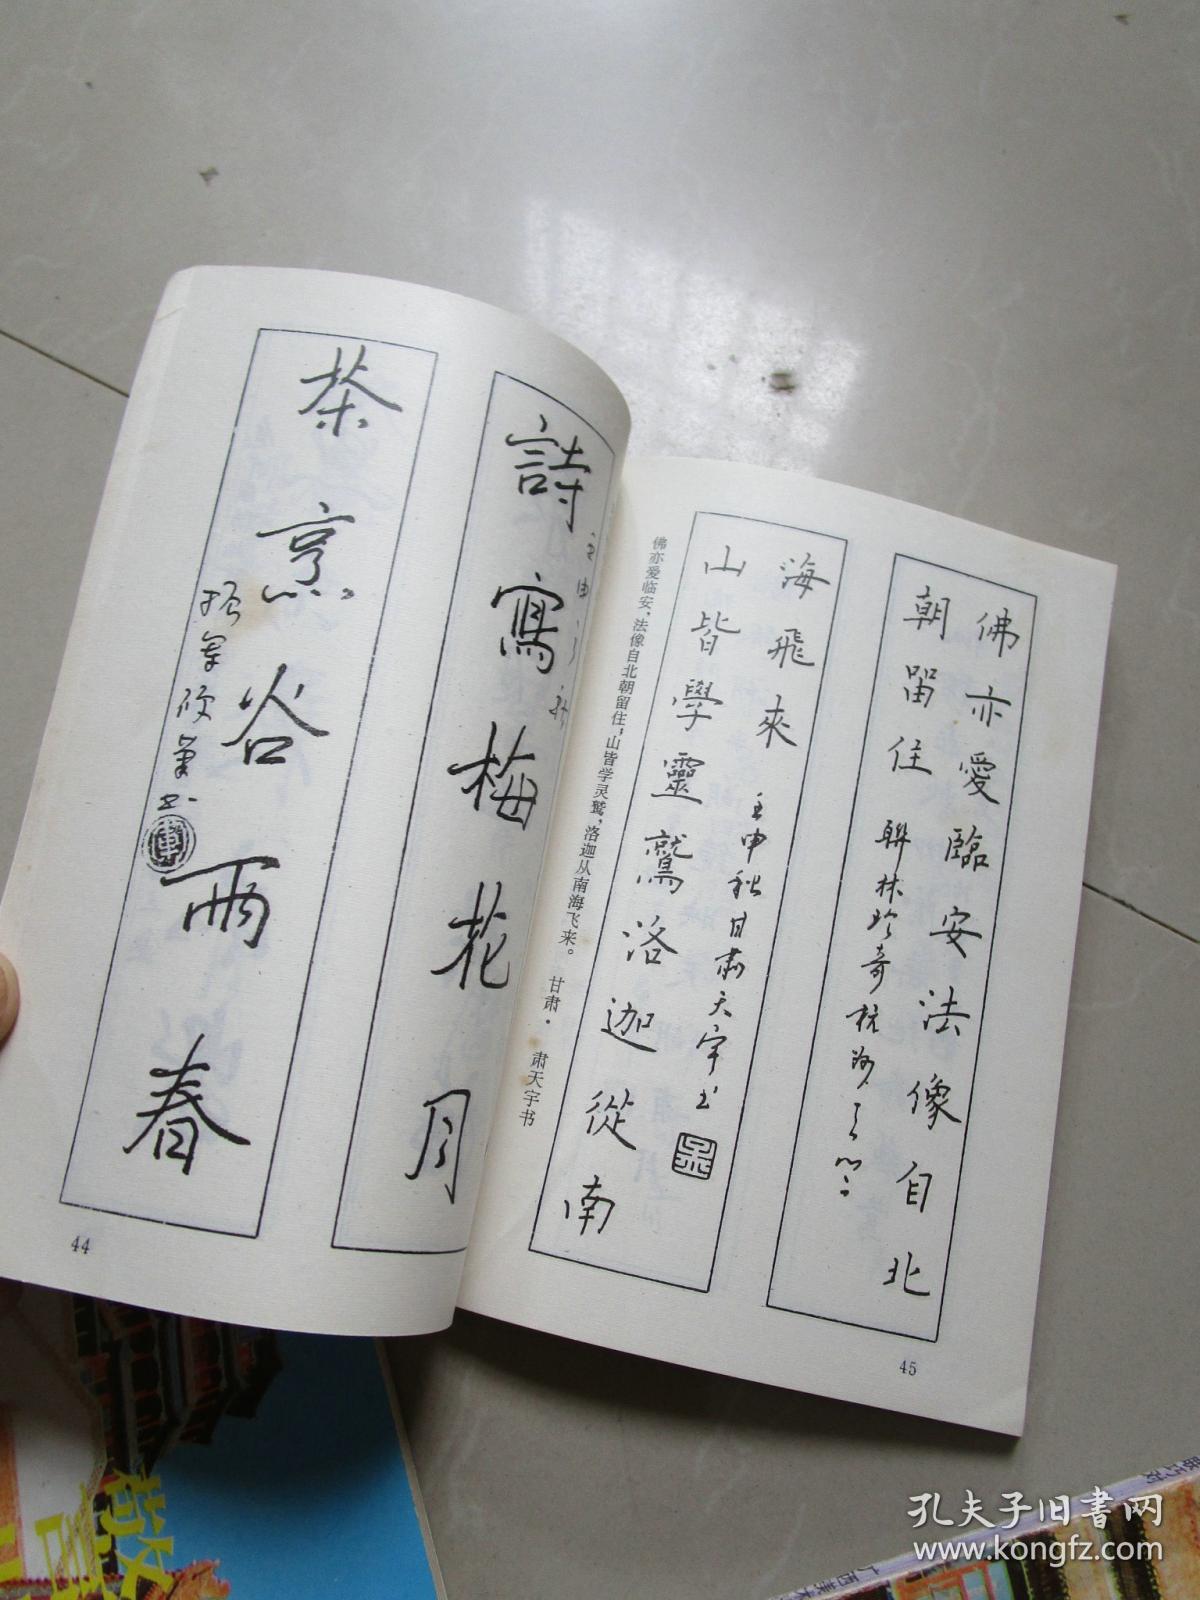 佛亦愛臨安法像自北
朝留住
山皆學靈鷲洛迦從南
海飛來
壬申秋甘肅天宇书
佛亦爱临安，法像自北朝留住；山皆学灵鹫，洛迦从南海飞来。
甘肃·肃天宇书
45
詩寫梅花月
茶烹谷雨春
44
孔夫子旧书网
www.kongfz.com